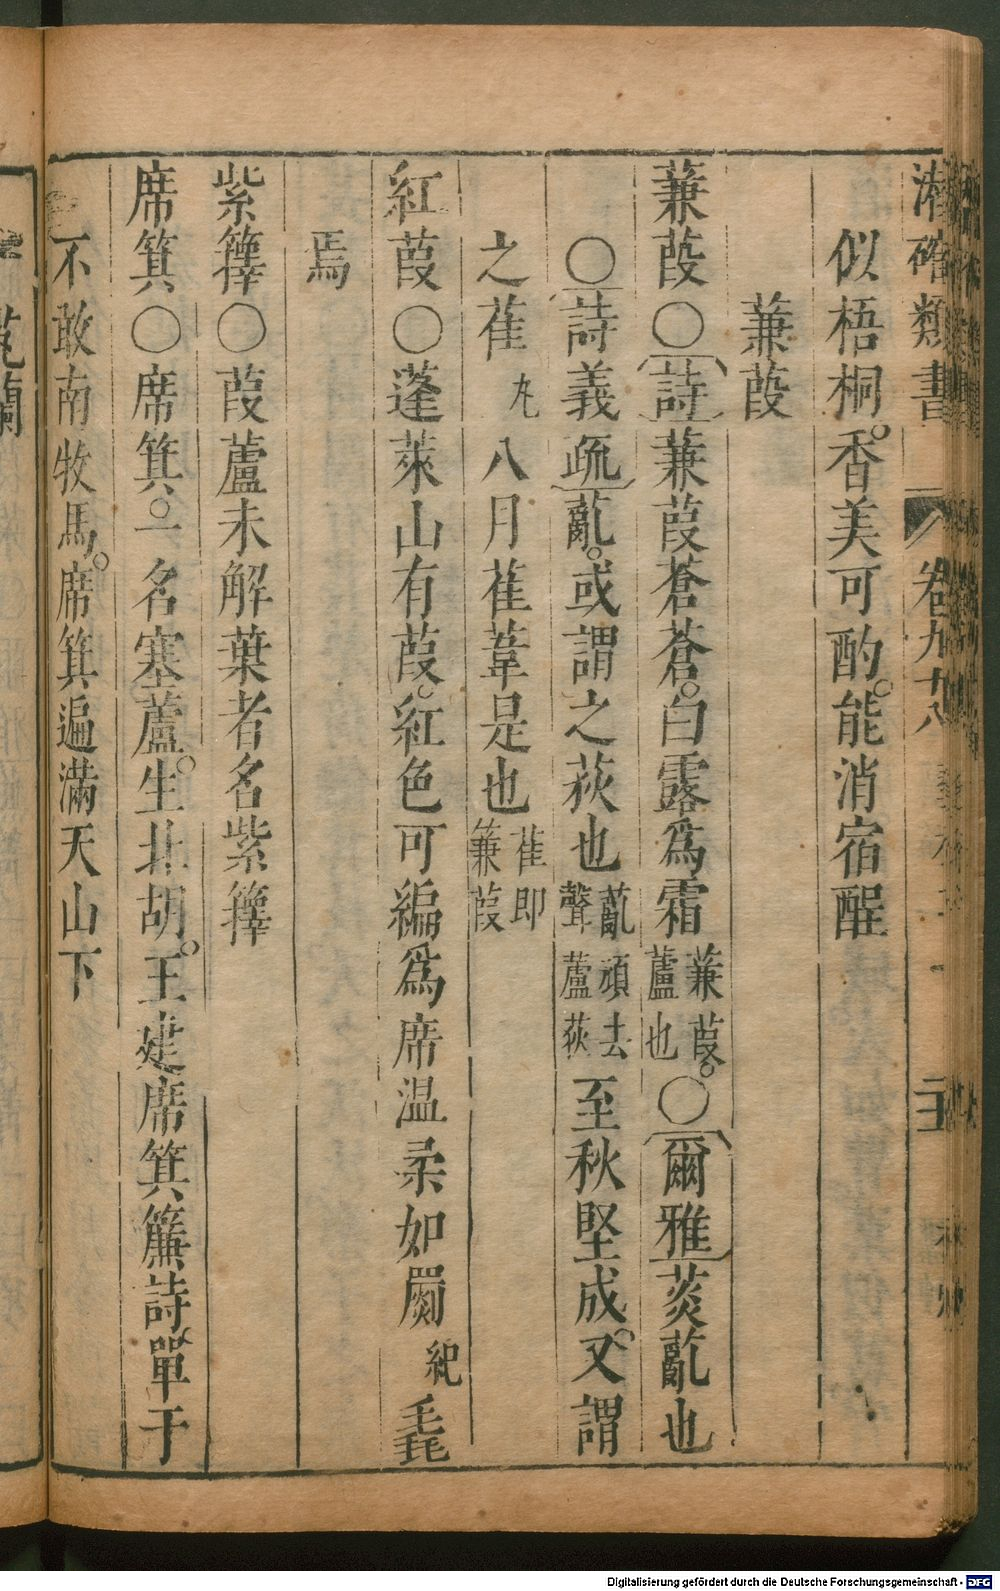 潛確類書 卷九十八
似梧桐。香美可酌。能消宿酲
蒹葭
蒹葭○〔詩〕蒹葭蒼蒼。白露爲霜蒹葭。蘆也○〔爾雅〕菼薍也
○〔詩義疏〕薍。或謂之荻也薍頑去聲蘆荻至秋堅成。又謂
之萑丸八月萑葦是也萑即蒹葭
紅葭○蓬萊山有葭。紅色可編爲席温柔如罽紀毳
焉
紫籜○葭蘆未解葉者名紫籜
席箕○席箕。一名塞蘆。生北胡。王建席箕簾詩單于
不敢南牧馬。席箕遍滿天山下
Digitalisierung gefördert durch die Deutsche Forschungsgemeinschaft - DFG